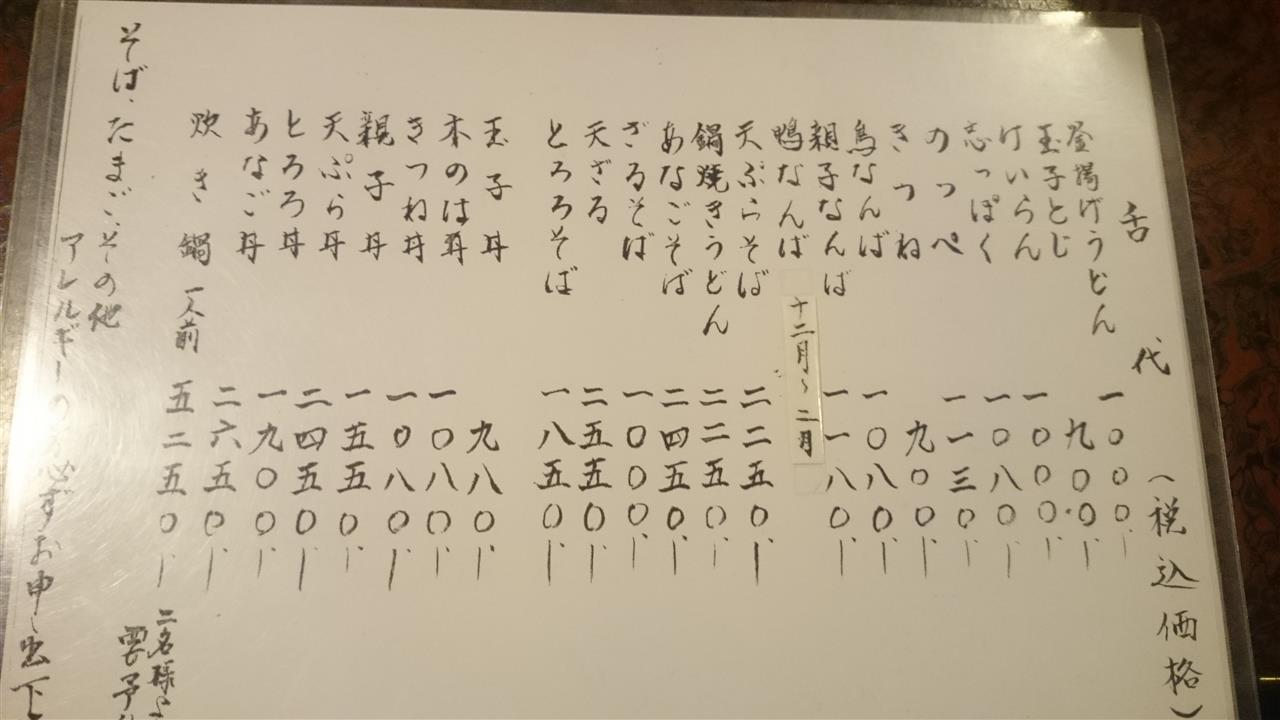 舌代（税込価格）
釜揚げうどん 一〇〇〇.-
玉子とじ 九〇〇.-
けいらん 一〇〇〇.-
志っぽく 一〇八〇.-
のっぺ 一一三〇.-
きつね 九〇〇.-
鳥なんば 一〇八〇.-
親子なんば 一一八〇.-
鴨なんば 十二月〜二月
天ぷらそば 二二五〇.-
鍋焼きうどん 二二五〇.-
あなごそば 二四五〇.-
ざるそば 一〇〇〇.-
天ざる 二五五〇.-
とろろそば 一八五〇.-
玉子丼 九八〇.-
木のは丼 一〇八〇.-
きつね丼 一〇八〇.-
親子丼 一五五〇.-
天ぷら丼 二四五〇.-
とろろ丼 一九〇〇.-
あなご丼 二六五〇.-
炊き鍋 一人前 五二五〇.-
二名様よ
要予
そば、たまご、その他
アレルギーの 必ずお申し出下